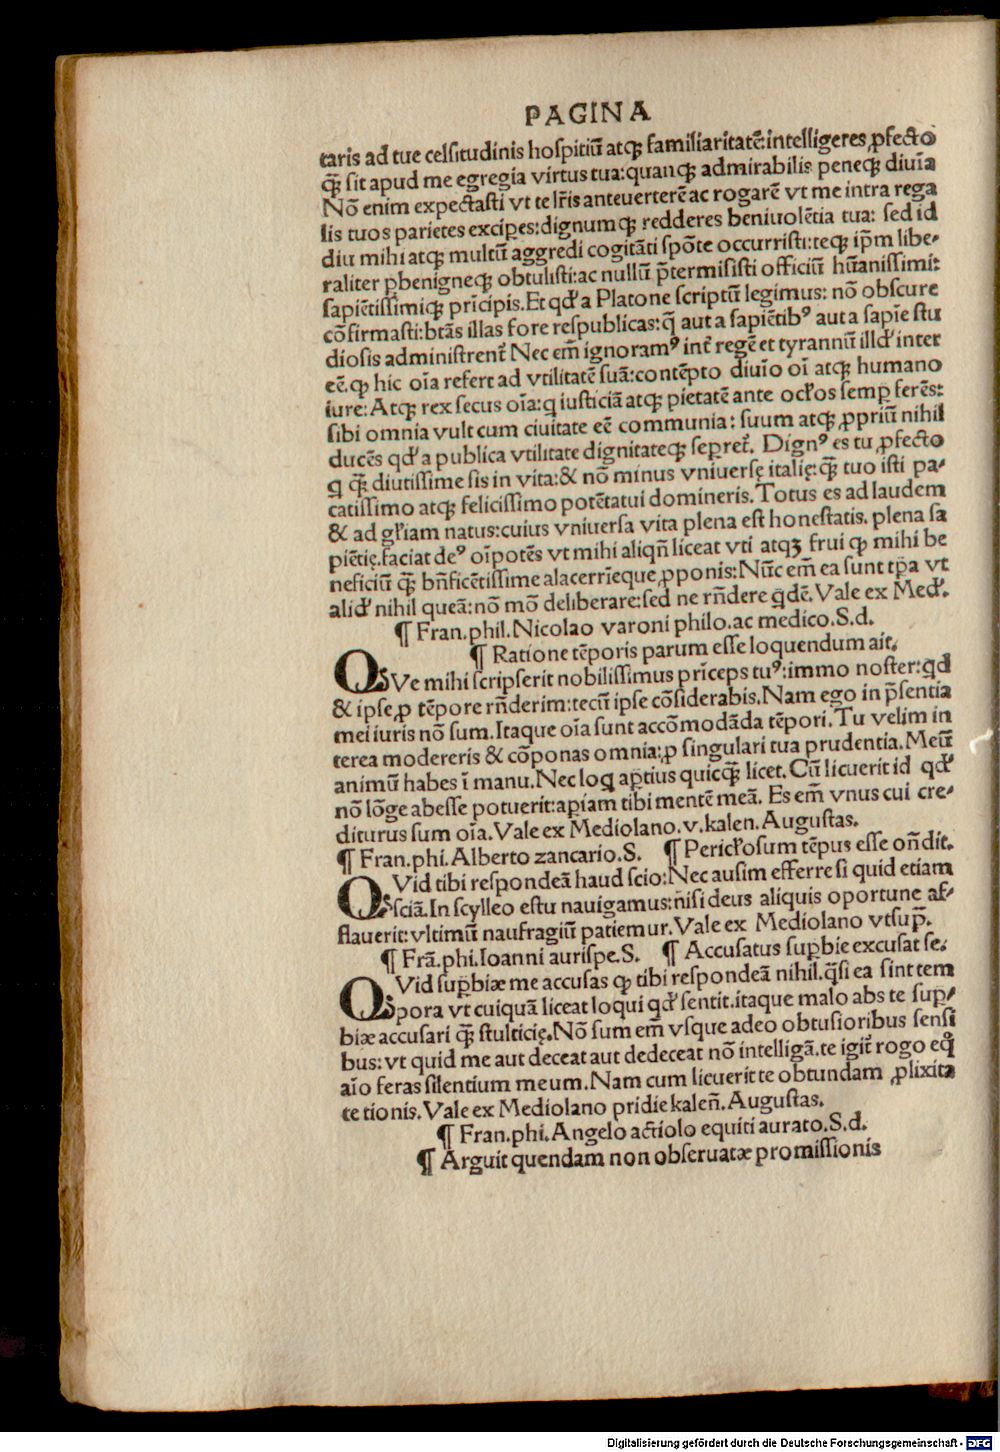 PAGINA
taris ad tue celsitudinis hospitiū atqꝫ familiaritatē:intelligeres ꝓfecto
qꝫ̄ sit apud me egregia virtus tua:quanqꝫ admirabilis peneqꝫ diuīa
Nō enim expectasti vt te lr̄is anteuerterē ac rogarē vt me intra rega
lis tuos parietes exciꝑes:dignumqꝫ redderes beniuolētia tua: sed id
diu mihi atqꝫ multū aggredi cogitāti spōte occurristi:teqꝫ ip̄m libe⸗
raliter ꝑbenigneqꝫ obtulisti:ac nullū p̄termisisti officiū hūanissimi:
sapiētissimiqꝫ prīcipis.Et qd̛ a Platone scriptū legimus: nō obscure
cōfirmasti:btās illas fore respublicas:q̄ aut a sapiētibꝰ aut a sapīe stu
diosis administrent̄ Nec em̄ ignoramꝰ int̄ regē et tyrannū illd̛ inter
eē.ꝙ hic oīa refert ad vtilitatē suā:contēpto diuīo oī atqꝫ humano
iure: Atqꝫ rex secus oīa:q iusticiā atqꝫ pietatē ante ocl̛os semꝑ ferēs:
sibi omnia vult cum ciuitate eē communia: suum atqꝫ ꝓpriū nihil
ducēs qd̛ a publica vtilitate dignitateqꝫ seꝑret̄. Dignꝰ es tu ꝓfecto
q qꝫ̄ diutissime sis in vita:& nō minus vniuersę italię:qꝫ̄ tuo isti pa⸗
catissimo atqꝫ felicissimo potētatui domineris.Totus es ad laudem
& ad gl̛iam natus:cuius vniuersa vita plena est honestatis. plena sa
piētię.faciat deꝰ oīpotēs vt mihi aliqn̄ liceat vti atqꝫ frui ꝙ mihi be
neficiū qꝫ̄ bn̄ficētissime alacerrīeque ꝓponis:Nūc em̄ ea sunt tꝑa vt
alid̛ nihil queā:nō mō deliberare:sed ne rn̄dere qdē.Vale ex Med̛.
¶ Fran.phil.Nicolao varoni philo.ac medico.S.d.
¶ Ratione tēporis parum esse loquendum ait.
QVe mihi scripserit nobilissimus prīceps tuꝰ:immo noster:qd̛
& ipse ꝓ tēpore rn̄derim:tecū ipse cōsiderabis.Nam ego in p̄sentia
mei iuris nō sum.Itaque oīa sunt accōmodāda tēpori.Tu velim in
terea modereris & cōponas omnia:ꝓ singulari tua prudentia.Meū
animū habes ī manu.Nec loq aꝑtius quicqꝫ̄ licet.Cū licuerit id qd̛
nō lōge abesse potuerit:aꝑiam tibi mentē meā. Es em̄ vnus cui cre⸗
diturus sum oīa.Vale ex Mediolano.v.kalen.Augustas.
¶ Fran.phi.Alberto zancario.S. ¶ Pericl̛osum tēpus esse on̄dit.
QVid tibi respondeā haud scio:Nec ausim efferre si quid etiam
sciā.In scylleo estu nauigamus:nisi deus aliquis oportune af⸗
flauerit:vltimū naufragiū patiemur.Vale ex Mediolano vtsup̄.
¶ Frā.phi.Ioanni aurispe.S. ¶ Accusatus suꝑbie excusat se.
QVid suꝑbiæ me accusas ꝙ tibi respondeā nihil.q̄si ea sint tem
pora vt cuiquā liceat loqui qd̛ sentit.itaque malo abs te suꝑ⸗
biæ accusari qꝫ̄ stulticię.Nō sum em̄ vsque adeo obtusioribus sensi
bus:vt quid me aut deceat aut dedeceat nō intelligā.te igit̄ rogo eq̊
aīo feras silentium meum.Nam cum licuerit te obtundam ꝓlixita
te tionis.Vale ex Mediolano pridie kalen̄.Augustas.
¶ Fran.phi.Angelo actiolo equiti aurato.S.d.
¶ Arguit quendam non obseruatæ promissionis
Digitalisierung gefördert durch die Deutsche Forschungsgemeinschaft - DFG